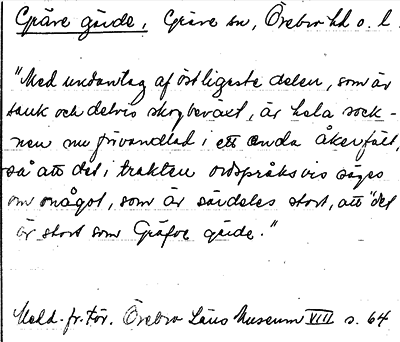 Gräve gärde, Gräve sn, Örebro hd o. l.
"Med undantag af östligaste delen, som är
sank och delvis skogbeväxt, är hela sock-
nen nu förvandlad i ett enda åkerfält,
så att det i trakten ordspråksvis säges
om något, som är särdeles stort, att "det
är stort som Gräfve gärde."
Medd. fr. För. Örebro Läns Museum VIII s. 64